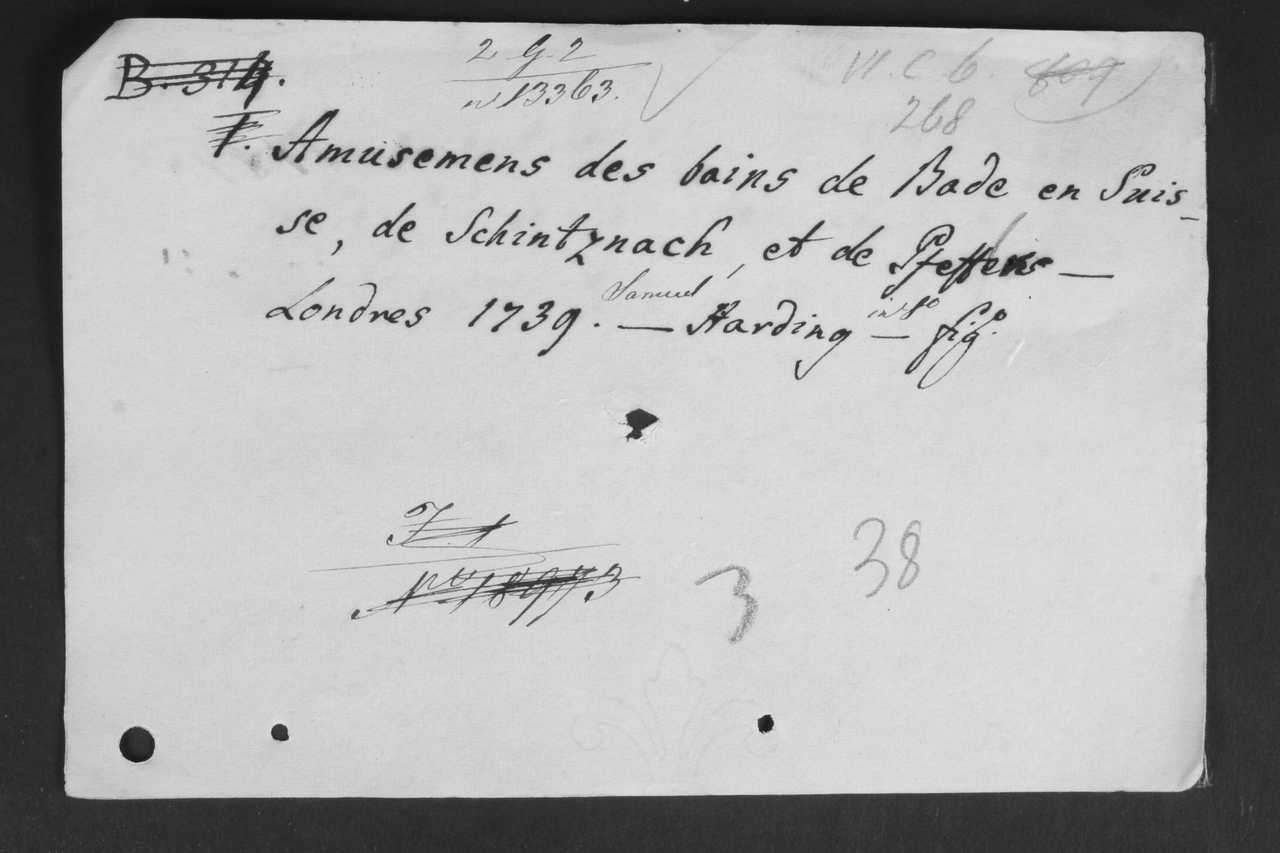 B. 314.
2 G 2
nº 13363.
VI. C 6. 809
268
T. Amusemens des bains de Bade en Suis-
se, de Schintznach, et de Pfeffers —
Londres 1739. — Samuel Harding — in 8º figº.
F. 1
Nº 18973
3
38